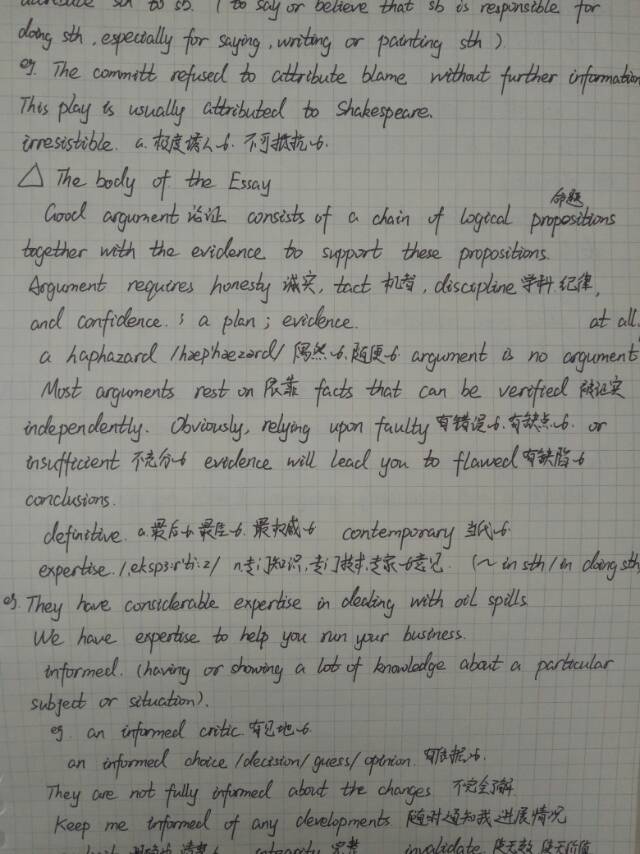 attribute sth to sb. ( to say or believe that sb is responsible for
doing sth, especially for saying, writing or painting sth )
eg. The committ refused to attribute blame without further information
This play is usually attributed to Shakespeare.
irresistible. a. 极度诱人的. 不可抵抗的.
△ The body of the Essay
命题
Good argument 论证 consists of a chain of logical propositions
together with the evidence to support these propositions.
Argument requires honesty 诚实, tact 机智, discipline 学科.纪律,
and confidence. ; a plan ; evidence. at all.
a haphazard /hæp'hæzərd/ 偶然的.随便的. argument is no argument
Most arguments rest on 依靠 facts that can be verified 被证实
independently. Obviously, relying upon faulty 有错误的.有缺点的. or
insufficient 不充分的 evidence will lead you to flawed 有缺陷的
conclusions.
definitive. a.最后的.最佳的. 最权威的 contemporary 当代的.
expertise. /,ekspɜ:r'ti:z/ n.专门知识,专门技术,专家的意见. (~ in sth / in doing sth
eg. They have considerable expertise in dealing with oil spills
We have expertise to help you run your business.
informed. (having or showing a lot of knowledge about a particular
subject or situation).
eg. an informed critic 有见地的
an informed choice / decision / guess / opinion. 有依据的.
They are not fully informed about the changes 不完全了解
Keep me informed of any developments 随时通知我进展情况
integrity 完整 invalidate 使无效 使无价值